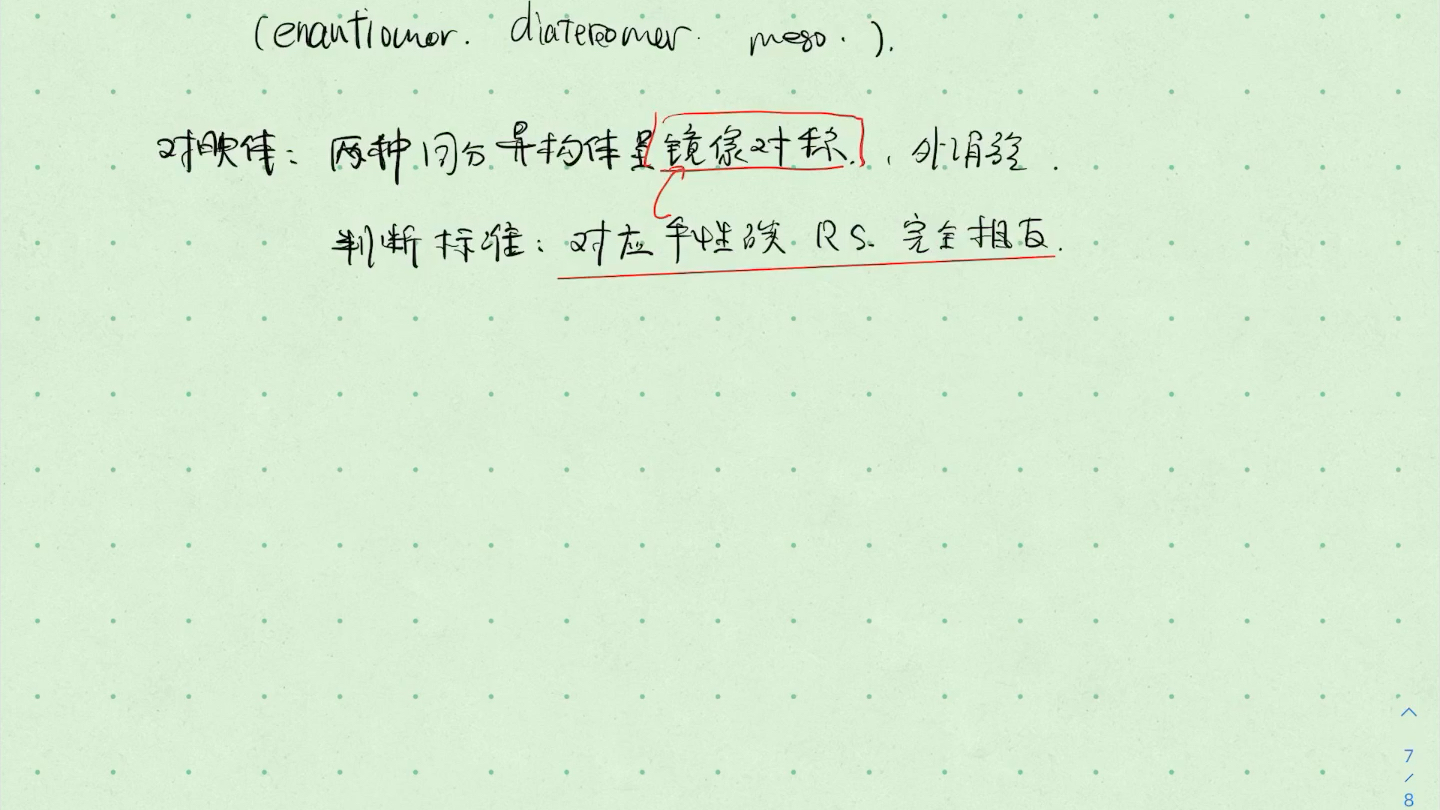 (enantiomor. diatereomer. meso. ).
对映体: 两种同分异构体呈镜像对称. , 外消旋 .
判断标准: 对应手性碳 R S. 完全相反.
7
/
8